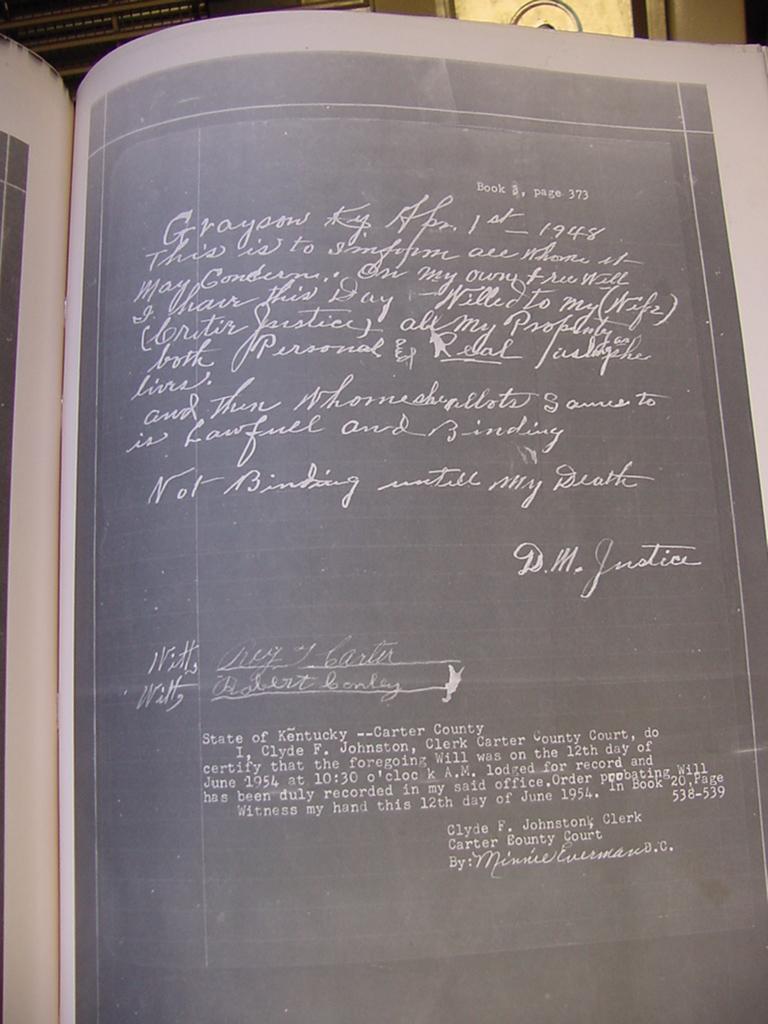 Book 3, page 373
Grayson Ky Apr. 1st - 1948
This is to Imform all Whome it
May Concern.. On my own free Will
I have this Day Willed to my (Wife)
(Critir Justice) all My Property
both Personal & Real as long as she
lives.
and then Whome she allots Same to
is Lawfull and Binding
Not Binding untill My Death
D.M. Justice
Witt, Carter
Witt, Robert Conley
State of Kentucky --Carter County
I, Clyde F. Johnston, Clerk Carter County Court, do
certify that the foregoing Will was on the 12th day of
June 1954 at 10:30 o'cloc k A.M. lodged for record and
has been duly recorded in my said office.Order probating Will
Witness my hand this 12th day of June 1954. In Book 20,Page
538-539
Clyde F. Johnston, Clerk
Carter Eounty Court
By: Minnie Everman D.C.